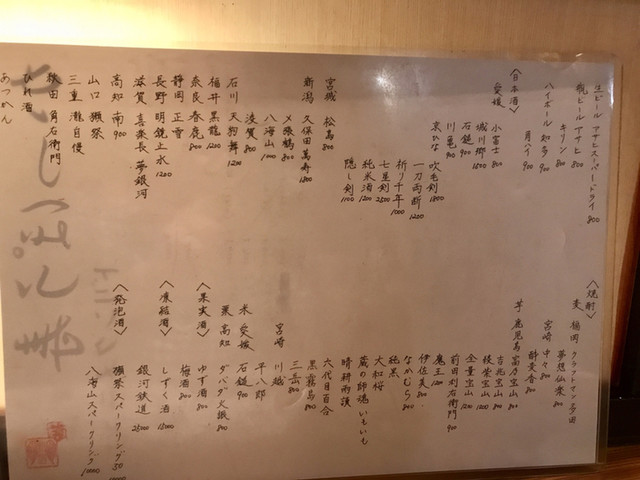 生ビール アサヒスーパードライ 800
瓶ビール アサヒ 800
キリン 800
ハイボール 知多 900
角ハイ 900
〈日本酒〉
愛媛 小富士 800
城川郷 1500
石鎚 900
川亀 900
京ひな 吹毛剣 1800
一刀両断 1200
祈り千年 1000
七星剣 2500
純米酒 1200
隠し剣 1100
宮城 松島 800
新潟 久保田 萬寿 1800
〆張鶴 800
八海山 1000
石川 天狗舞 1200
福井 黒龍 1200
奈良 春鹿 800
静岡 正雪
長野 明鏡止水 1200
滋賀 喜楽長 夢銀河
高知 南 900
山口 獺祭
三重 瀧自慢
秋田 角右衛門
ひれ酒
あつかん
〈焼酎〉
麦 福岡 クラフトマン多田
夢想仙楽 800
宮崎 中々 800
酔麦香 800
芋 鹿児島 富乃宝山 800
吉兆宝山 800
桜蛮宝山 1200
全量宝山 1200
前田利右衛門 900
魔王 1200
伊佐美 800
なかむら 800
純黒
大和桜
蔵の師魂 いもいも
晴耕雨讀
六代目百合
黒霧島 800
三岳 800
宮崎 川越
平八郎
米 愛媛 石鎚 900
栗 高知 ダバダ火振 800
〈果実酒〉
ゆず酒 800
梅酒 800
〈凍結酒〉
しずく酒 1500
銀河鉄道 2500
〈発泡酒〉
獺祭スパークリング50
八海山スパークリング